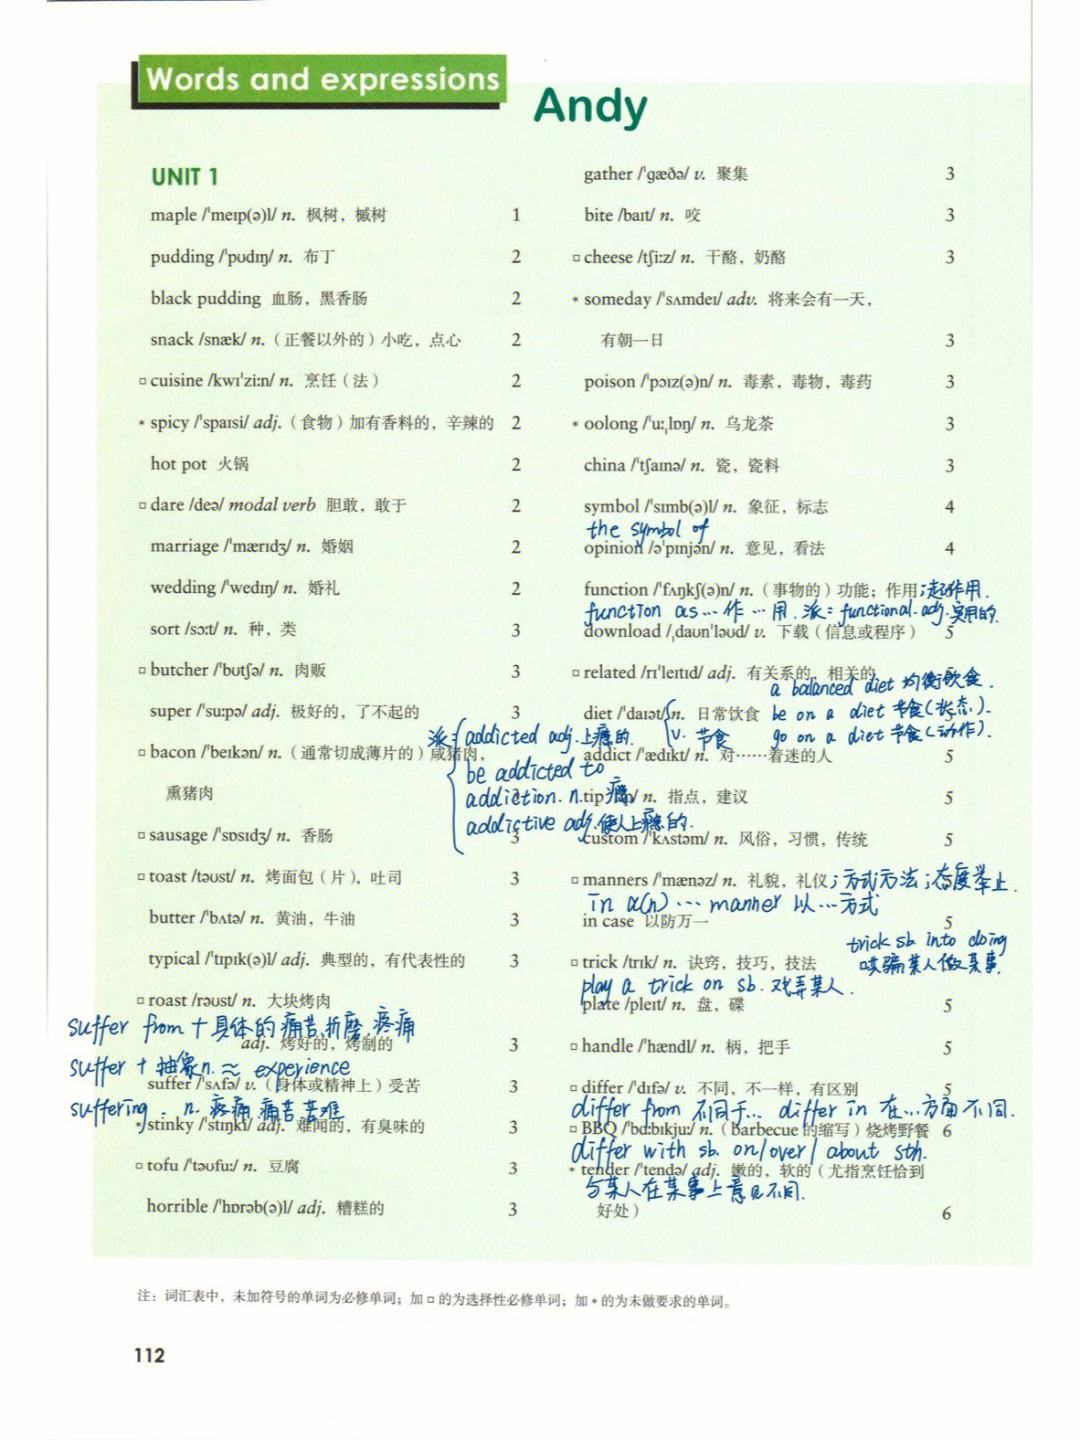 Words and expressions
Andy
UNIT 1
maple /ˈmeɪp(ə)l/ n. 枫树，槭树 1
pudding /ˈpʊdɪŋ/ n. 布丁 2
black pudding 血肠，黑香肠 2
snack /snæk/ n.（正餐以外的）小吃，点心 2
▫ cuisine /kwɪˈziːn/ n. 烹饪（法） 2
* spicy /ˈspaɪsi/ adj.（食物）加有香料的，辛辣的 2
hot pot 火锅 2
▫ dare /deə/ modal verb 胆敢，敢于 2
marriage /ˈmærɪdʒ/ n. 婚姻 2
wedding /ˈwedɪŋ/ n. 婚礼 2
sort /sɔːt/ n. 种，类 3
▫ butcher /ˈbʊtʃə/ n. 肉贩 3
super /ˈsuːpə/ adj. 极好的，了不起的 3
▫ bacon /ˈbeɪkən/ n.（通常切成薄片的）咸猪肉，
熏猪肉
▫ sausage /ˈsɒsɪdʒ/ n. 香肠 3
▫ toast /təʊst/ n. 烤面包（片），吐司 3
butter /ˈbʌtə/ n. 黄油，牛油 3
typical /ˈtɪpɪk(ə)l/ adj. 典型的，有代表性的 3
▫ roast /rəʊst/ n. 大块烤肉
suffer from + 具体的痛苦，折磨，疼痛
adj. 烤好的，烤制的 3
suffer + 抽象n. ≈ experience
suffer /ˈsʌfə/ v.（身体或精神上）受苦 3
suffering. n. 疼痛，痛苦 苦难
* stinky /ˈstɪŋki/ adj. 难闻的，有臭味的 3
▫ tofu /ˈtəʊfuː/ n. 豆腐 3
horrible /ˈhɒrəb(ə)l/ adj. 糟糕的 3
gather /ˈɡæðə/ v. 聚集 3
bite /baɪt/ n. 咬 3
▫ cheese /tʃiːz/ n. 干酪，奶酪 3
* someday /ˈsʌmdeɪ/ adv. 将来会有一天，
有朝一日 3
poison /ˈpɔɪz(ə)n/ n. 毒素，毒物，毒药 3
* oolong /ˈuːˌlɒŋ/ n. 乌龙茶 3
china /ˈtʃaɪnə/ n. 瓷，瓷料 3
symbol /ˈsɪmb(ə)l/ n. 象征，标志 4
the symbol of
opinion /əˈpɪnjən/ n. 意见，看法 4
function /ˈfʌŋkʃ(ə)n/ n.（事物的）功能；作用；起作用.
function as… 作…用. 派= functional. adj. 实用的.
download /ˌdaʊnˈləʊd/ v. 下载（信息或程序） 5
▫ related /rɪˈleɪtɪd/ adj. 有关系的，相关的
a balanced diet 均衡饮食.
diet /ˈdaɪət/ n. 日常饮食 be on a diet 节食（状态）.
v. 节食 go on a diet 节食（动作）.
派= addicted adj. 上瘾的.
addict /ˈædɪkt/ n. 对……着迷的人 5
be addicted to
addiction. n. 瘾
tip /tɪp/ n. 指点，建议 5
addictive adj. 使人上瘾的.
custom /ˈkʌstəm/ n. 风俗，习惯，传统 5
▫ manners /ˈmænəz/ n. 礼貌，礼仪；方式方法；态度举止. 5
in a(n) … manner 以…方式
in case 以防万一 5
trick sb. into doing
▫ trick /trɪk/ n. 诀窍，技巧，技法 哄骗某人做某事.
play a trick on sb. 戏弄某人.
plate /pleɪt/ n. 盘，碟 5
▫ handle /ˈhændl/ n. 柄，把手 5
▫ differ /ˈdɪfə/ v. 不同，不一样，有区别 5
differ from 不同于… differ in 在…方面不同.
▫ BBQ /ˈbɑːbɪkjuː/ n.（barbecue 的缩写）烧烤野餐 6
differ with sb. on/over/about sth.
* tender /ˈtendə/ adj. 嫩的，软的（尤指烹饪恰到
与某人在某事上意见不同.
好处） 6
注：词汇表中，未加符号的单词为必修单词；加 ▫ 的为选择性必修单词；加 * 的为未做要求的单词。
112